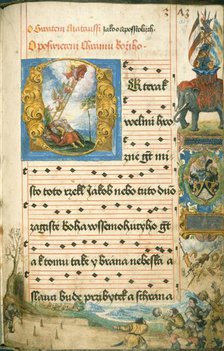 O Swatem Mataussi Jakoo apostolich
O poswieceni Chramu bozijho
Nterak
welmi hro
zne gt mi
sto toto rzekl Jakob nebo tuto duo
zagiste boha wssemohutyho gt
a k tomu take y brana nebeska a
slawa bude przijbytek a schrana